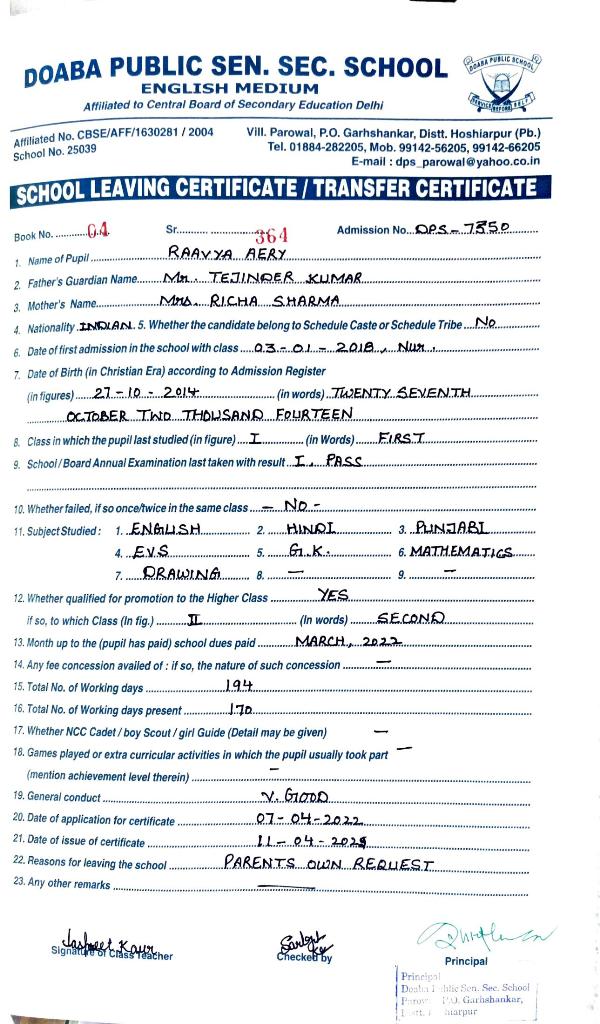 DOABA PUBLIC SEN. SEC. SCHOOL
ENGLISH MEDIUM
Affiliated to Central Board of Secondary Education Delhi
DOABA PUBLIC SCHOOL
SERVICE BEFORE SELF
Affiliated No. CBSE/AFF/1630281 / 2004
School No. 25039
Vill. Parowal, P.O. Garhshankar, Distt. Hoshiarpur (Pb.)
Tel. 01884-282205, Mob. 99142-56205, 99142-66205
E-mail : dps_parowal@yahoo.co.in
SCHOOL LEAVING CERTIFICATE / TRANSFER CERTIFICATE
Book No. 04 Sr. 364 Admission No. DPS-7350
1. Name of Pupil RAAVYA AERY
2. Father's Guardian Name Mr. TEJINDER KUMAR
3. Mother's Name Mrs. RICHA SHARMA
4. Nationality INDIAN 5. Whether the candidate belong to Schedule Caste or Schedule Tribe No
6. Date of first admission in the school with class 03-01-2018, Nur.
7. Date of Birth (in Christian Era) according to Admission Register
(in figures) 27-10-2014 (in words) TWENTY SEVENTH
OCTOBER TWO THOUSAND FOURTEEN
8. Class in which the pupil last studied (in figure) I (in Words) FIRST
9. School / Board Annual Examination last taken with result I, PASS
10. Whether failed, if so once/twice in the same class - NO -
11. Subject Studied : 1. ENGLISH 2. HINDI 3. PUNJABI
4. EVS 5. G.K. 6. MATHEMATICS
7. DRAWING 8. — 9. —
12. Whether qualified for promotion to the Higher Class YES
if so, to which Class (In fig.) II (In words) SECOND
13. Month up to the (pupil has paid) school dues paid MARCH, 2022
14. Any fee concession availed of : if so, the nature of such concession —
15. Total No. of Working days 194
16. Total No. of Working days present 170
17. Whether NCC Cadet / boy Scout / girl Guide (Detail may be given) —
18. Games played or extra curricular activities in which the pupil usually took part —
(mention achievement level therein) -
19. General conduct V. GOOD
20. Date of application for certificate 07-04-2022
21. Date of issue of certificate 11-04-
22. Reasons for leaving the school PARENTS OWN REQUEST
23. Any other remarks —
Jaspreet Kaur
Signature of Class Teacher
Checked by
Principal
Principal
Doaba Public Sen. Sec. School
P.O. Garhshankar,